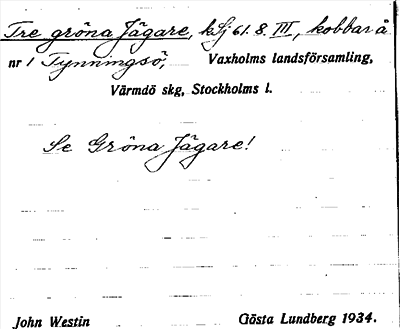 Tre gröna Jägare, kSj 61. 8. III, kobbar å
nr 1 Tynningsö, Vaxholms landsförsamling,
Värmdö skg, Stockholms l.
Se Gröna Jägare!
John Westin Gösta Lundberg 1934.